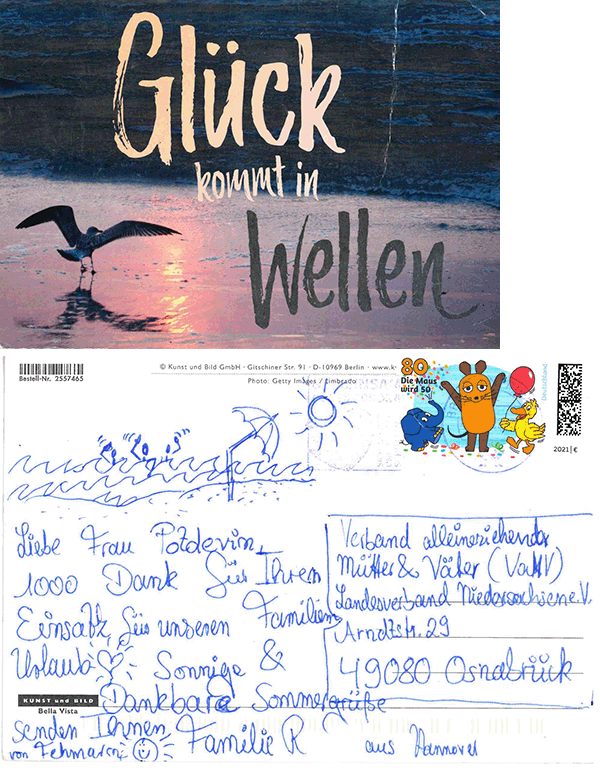 Glück
kommt in
Wellen
Bestell-Nr. 2557465
© Kunst und Bild GmbH · Gitschiner Str. 91 · D-10969 Berlin · www.k
Photo: Getty Images / timbrado
80
Die Maus
wird 50
Deutschland
2021 | €
Liebe Frau Potdevin,
1000 Dank für Ihren
Einsatz für unseren Familien
Urlaub Sonnige &
Dankbare Sommergrüße
senden Ihnen Familie R aus Hannover
von Fehmarn
KUNST und BILD
Bella Vista
Verband alleinerziehender
Mütter & Väter (VaMV)
Landesverband Niedersachsen e.V.
Arndtstr. 29
49080 Osnabrück